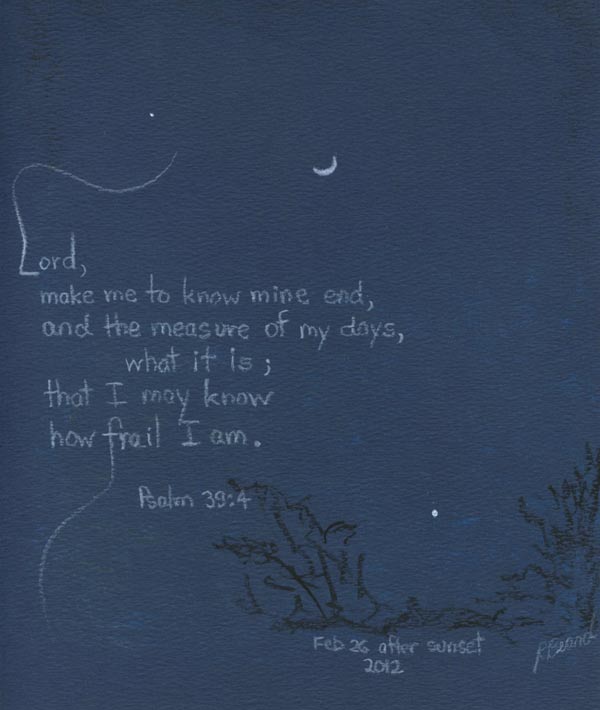 Lord,
make me to know mine end,
and the measure of my days,
what it is;
that I may know
how frail I am.
Psalm 39:4
Feb 26 after sunset
2012